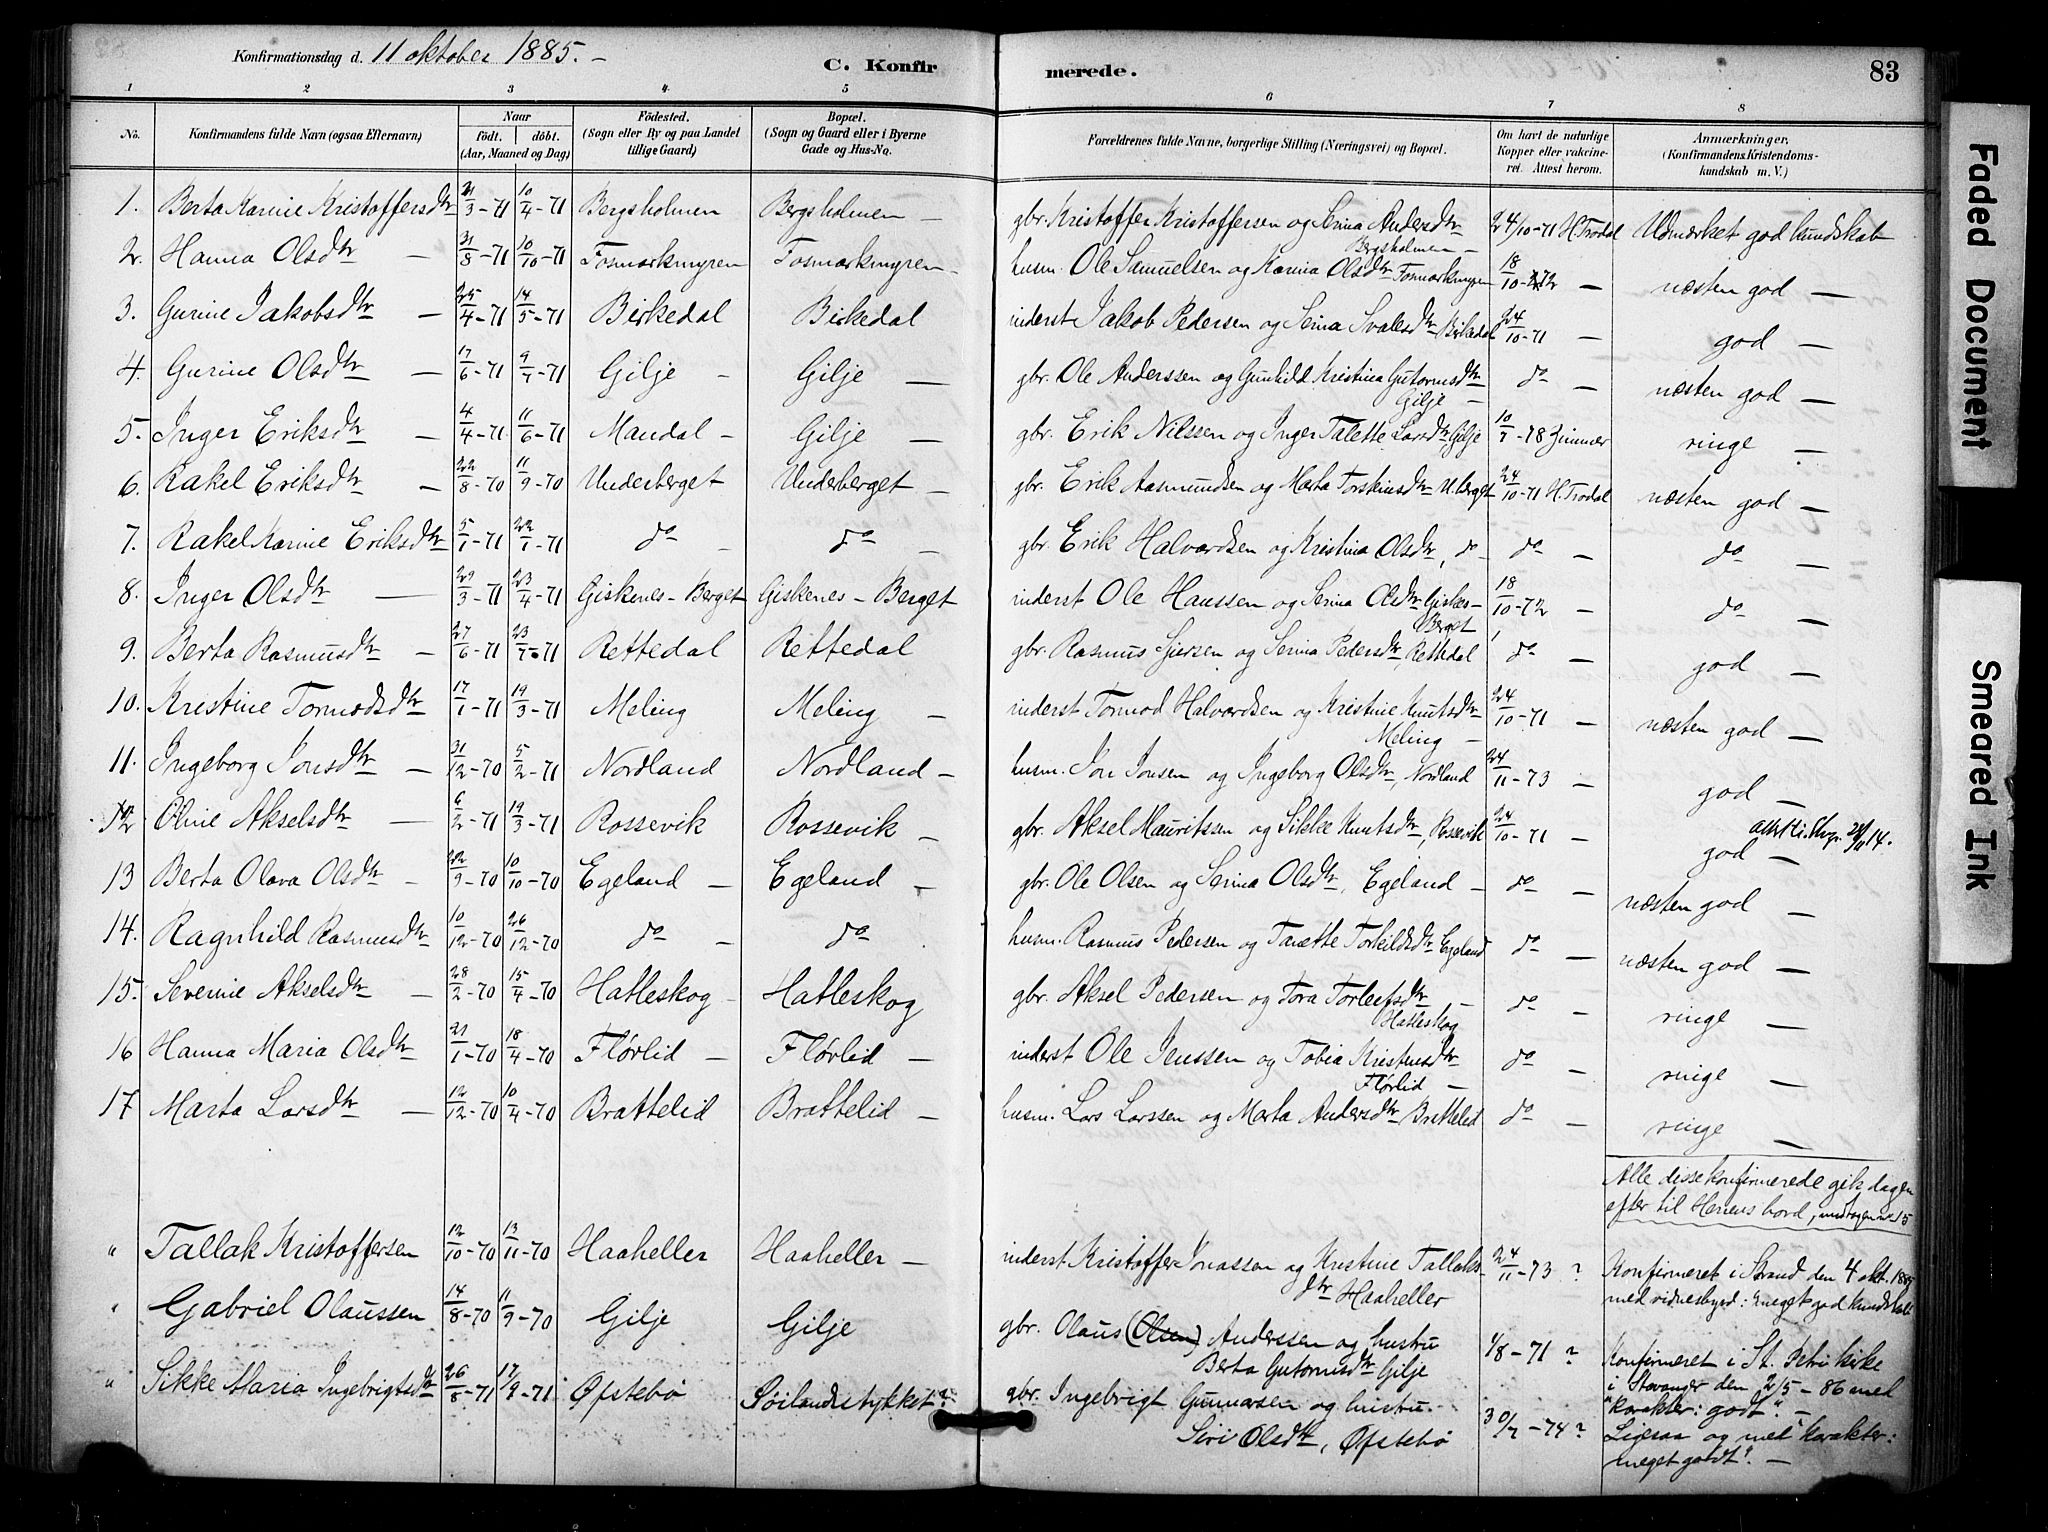 Konfirmationsdag d. 11 oktober 1885. –
C. Konfir
merede.
83
1 2 3 4 5 6 7 8
No. Konfirmandens fulde Navn (ogsaa Efternavn) Naar født. døbt. (Aar, Maaned og Dag) Fødested. (Sogn eller By og paa Landet tillige Gaard) Bopæl. (Sogn og Gaard eller i Byerne Gade og Hus-No. Forældrenes fulde Navne, borgerlige Stilling (Næringsvei) og Bopæl. Om havt de naturlige Kopper eller vakcineret. Attest herom. Anmærkninger. (Konfirmandens Kristendomskundskab m. V.)
1. Berta Karine Kristoffersdtr 21/3-71 10/4-71 Bergsholmen Bergsholmen – gbr. Kristoffer Kristoffersen og Serina Andersdtr Bergsholmen – 24/10-71 H. Trodal Udmærket god kundskab
2. Hanna Olsdtr – 31/8-71 10/10-71 Fosmarkmyren Fosmarkmyren – husm. Ole Samuelsen og Karina Olsdtr Fosmarkmyren 18/10-72 – næsten god –
3. Gurine Jakobsdtr – 25/4-71 14/5-71 Birkedal Birkedal inderst Jakob Pedersen og Serina Svalesdtr Birkedal 24/10-71 – god –
4. Gurine Olsdtr – 17/6-71 9/7-71 Gilje – Gilje – gbr. Ole Anderssen og Gunhild Kristina Gutormsdtr Gilje – do – næsten god –
5. Inger Eriksdtr – 4/4-71 11/6-71 Mandal – Gilje – gbr. Erik Nilssen og Inger Talette Larsdtr Gilje 10/7-78 Zimmer ringe –
6. Rakel Eriksdtr – 22/8-70 11/9-70 Underberget Underberget – gbr. Erik Aasmundsen og Marta Torkinsdtr U.berget 24/10-71 H. Trodal næsten god –
7. Rakel Karine Eriksdtr 5/1-71 22/1-71 do – do – gbr. Erik Halvardsen og Kristina Olsdtr, do – do – do –
8. Inger Olsdtr – 29/3-71 23/4-71 Giskenes-Berget Giskenes-Berget inderst Ole Hanssen og Serina Olsdtr Giskes-Berget 18/10-72 – do –
9. Berta Rasmusdtr – 27/6-71 23/7-71 Rettedal Rettedal gbr. Rasmus Sjursen og Serina Pedersdtr, Rettedal do – god –
10. Kristine Tormodsdtr 17/1-71 19/3-71 Meling Meling – inderst Tormod Halvardsen og Kristine Knutsdtr Meling – 24/10-71 – næsten god –
11. Ingeborg Jonsdtr – 31/12-70 5/2-71 Nordland Nordland – husm. Jon Jonsen og Ingeborg Olsdtr, Nordland 24/11-73 – god –
12 Oline Akselsdtr – 6/2-71 19/3-71 Rossevik Rossevik – gbr. Aksel Mauritssen og Sikke Knutsdtr, Rossevik 24/10-71 – god –
13 Berta Olava Olsdtr – 22/9-70 10/10-70 Egeland – Egeland – gbr. Ole Olsen og Serina Olsdtr, Egeland – do – næsten god –
14. Ragnhild Rasmusdtr 10/12-70 26/12-70 do – do husm. Rasmus Pedersen og Tarette Torkildsdtr Egeland do – næsten god –
15. Severine Akselsdtr – 28/2-70 15/4-70 Hatleskog – Hatleskog gbr. Aksel Pedersen og Tora Torleifsdtr, – Hatleskog do – ringe –
16 Hanna Maria Olsdtr 21/1-70 18/4-70 Flørlid – Flørlid – inderst Ole Jenssen og Tobia Kristensdtr Flørlid – do – ringe –
17 Marta Larsdtr – 12/12-70 10/4-70 Brattelid Brattelid – husm. Lars Larssen og Marta Andersdtr Brattelid do – ringe –
Alle disse konfirmerede gik dagen
efter til Herrens bord, undtagen nr. 15
" Tallak Kristoffersen 12/10-70 13/11-70 Haaheller Haaheller – inderst Kristoffer Jonassen og Kristine Tallaksdtr Haaheller 24/11-73 ? Konfirmeret i Strand den 4 okt. 1885 med vidnesbyrd: meget god kundskab
" Gabriel Olaussen 14/8-70 11/9-70 Gilje Gilje gbr. Olaus (Olsen) Anderssen og hustru Berta Gutormsdtr Gilje 1/8-71 ? Konfirmeret i St. Petri kirke i Stavanger den 2/5-86 med "karakter: godt". –
" Sikke Maria Ingebrigtsdtr 26/8-71 17/9-71 Øfstebø Söilandsstykket? gbr. Ingebrigt Gunnarsen og hustru Siri Olsdtr, Øfstebø 30/7-74 ? Ligesaa og med karakter: "meget godt". –
Faded Document
Smeared Ink